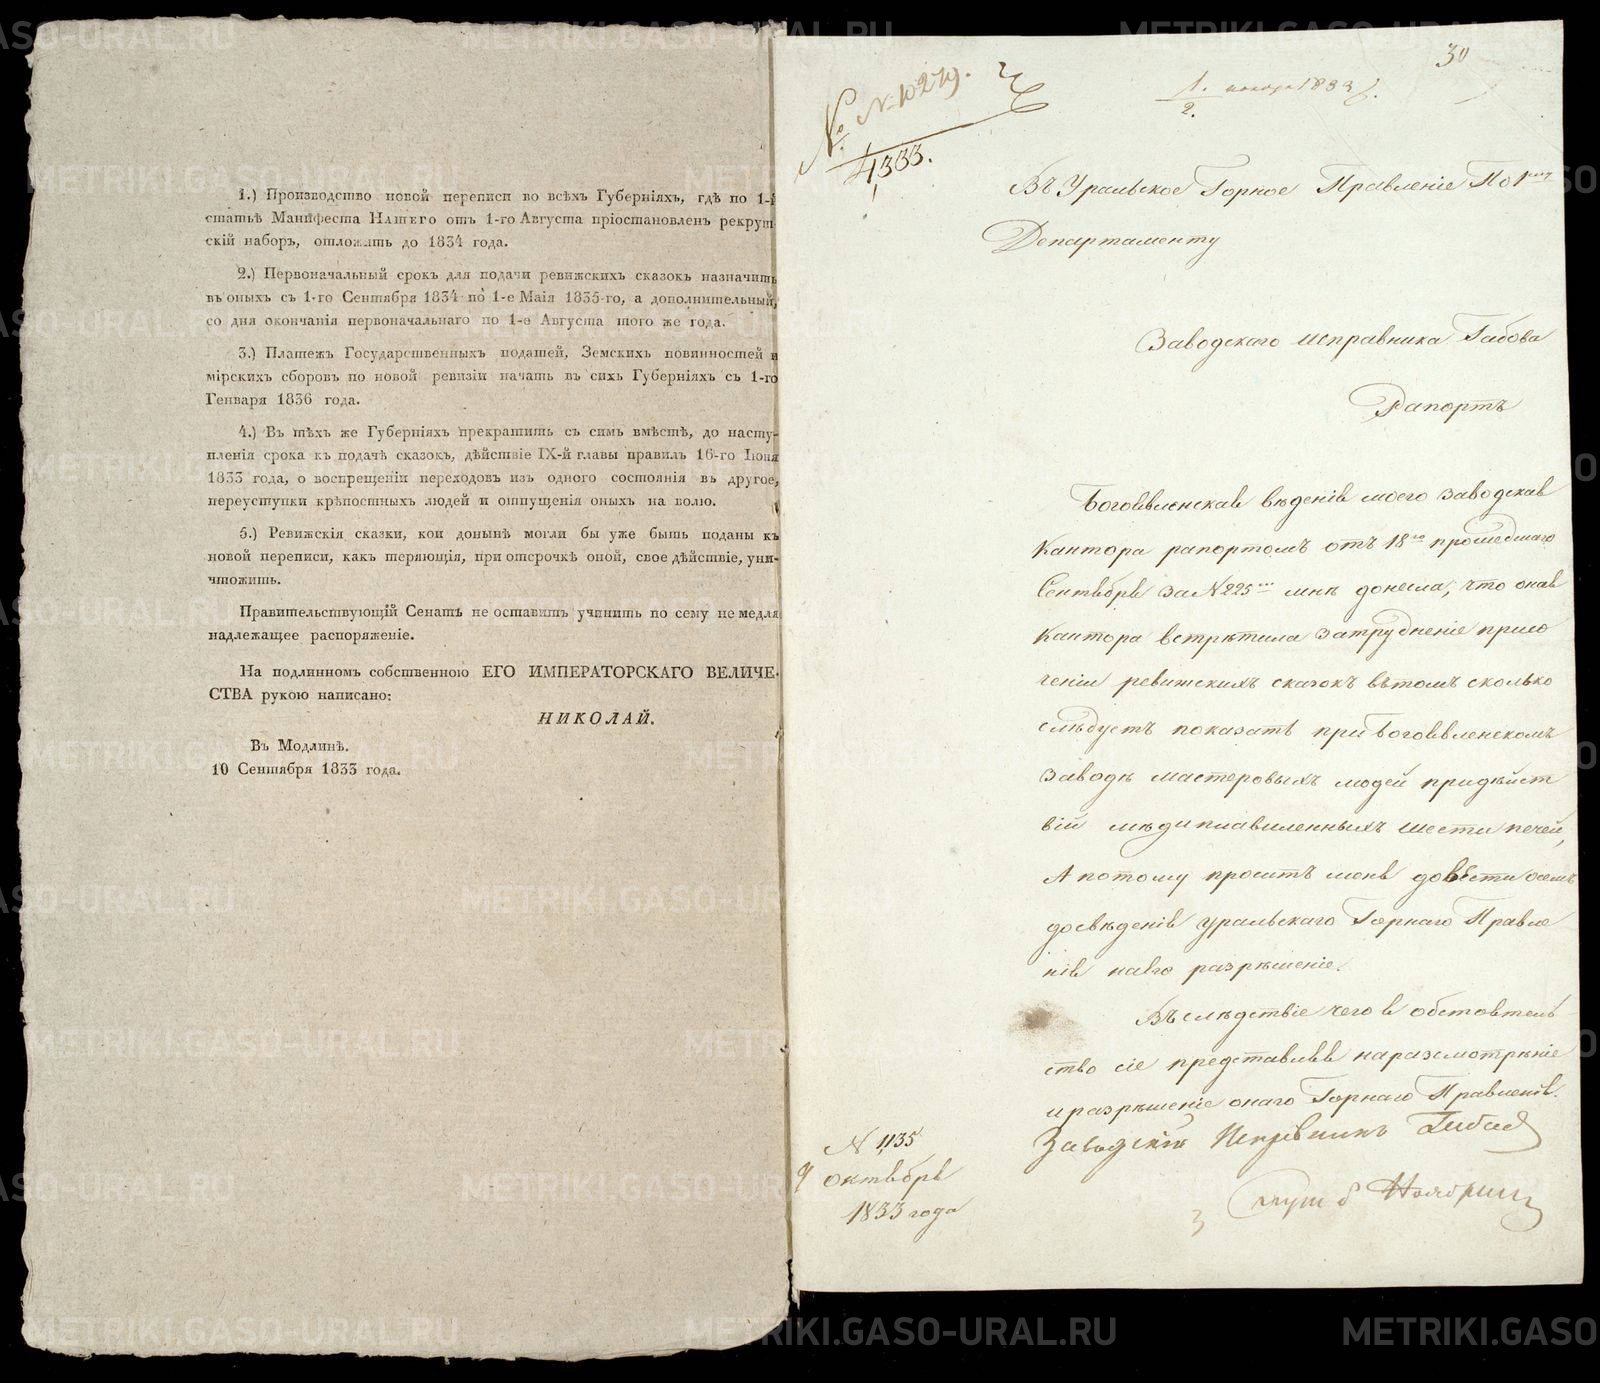 1.) Производство новой переписи во всѣхъ Губерніяхъ, гдѣ по 1-й
статьѣ Манифеста НАШЕГО отъ 1-го Августа пріостановленъ рекрут
скій наборъ, отложить до 1834 года.
2.) Первоначальный срокъ для подачи ревижскихъ сказокъ назначить
въ оныхъ съ 1-го Сентября 1834 по 1-е Маія 1835-го, а дополнительный,
со дня окончанія первоначальнаго по 1-е Августа того же года.
3.) Платежъ Государственныхъ податей, Земскихъ повинностей и
мірскихъ сборовъ по новой ревизіи начать въ сихъ Губерніяхъ съ 1-го
Генваря 1836 года.
4.) Въ тѣхъ же Губерніяхъ прекратить съ симъ вмѣстѣ, до насту-
пленія срока къ подачѣ сказокъ, дѣйствіе IX-й главы правилъ 16-го Іюня
1833 года, о воспрещеніи переходовъ изъ одного состоянія въ другое,
переуступки крѣпостныхъ людей и отпущенія оныхъ на волю.
5.) Ревижскія сказки, кои донынѣ могли бы уже быть поданы къ
новой переписи, какъ теряющія, при отсрочкѣ оной, свое дѣйствіе, уни-
чтожить.
Правительствующій Сенатъ не оставитъ учинить по сему не медля
надлежащее распоряженіе.
На подлинномъ собственною ЕГО ИМПЕРАТОРСКАГО ВЕЛИЧЕ-
СТВА рукою написано:
НИКОЛАЙ.
Въ Модлинѣ.
10 Сентября 1833 года.
30
№ 10279.
4,333.
1. 1833
2.
Въ Уральское Горное Правленіе По 1му
Департаменту
Заводскаго исправника Габова
Рапортъ
Богоявленская вѣденія моего заводская
Кантора рапортомъ отъ 18го прошедшаго
Сентября за N 225мъ мнѣ донесла, что оная
Кантора встрѣтила затрудненіе присо
ченіи ревижскихъ сказокъ вътомъ сколько
слѣдуетъ показать при Богоявленскомъ
заводѣ мастеровыхъ людей придѣйст
віи мѣдиплавиленныхъ шести печей,
А потому проситъ меня довѣсти осемъ
досвѣденія Уральскаго Горнаго Правле
нія наего разрѣшеніе.
Въслѣдствіе чего я обстоятель
ство сіе представляя наразсмотрѣніе
иразрѣшеніе онаго Горнаго Правленія.
Заводскій Исправникъ Габов
N 1135
9 октября
1833 года
METRIKI.GASO-URAL.RU